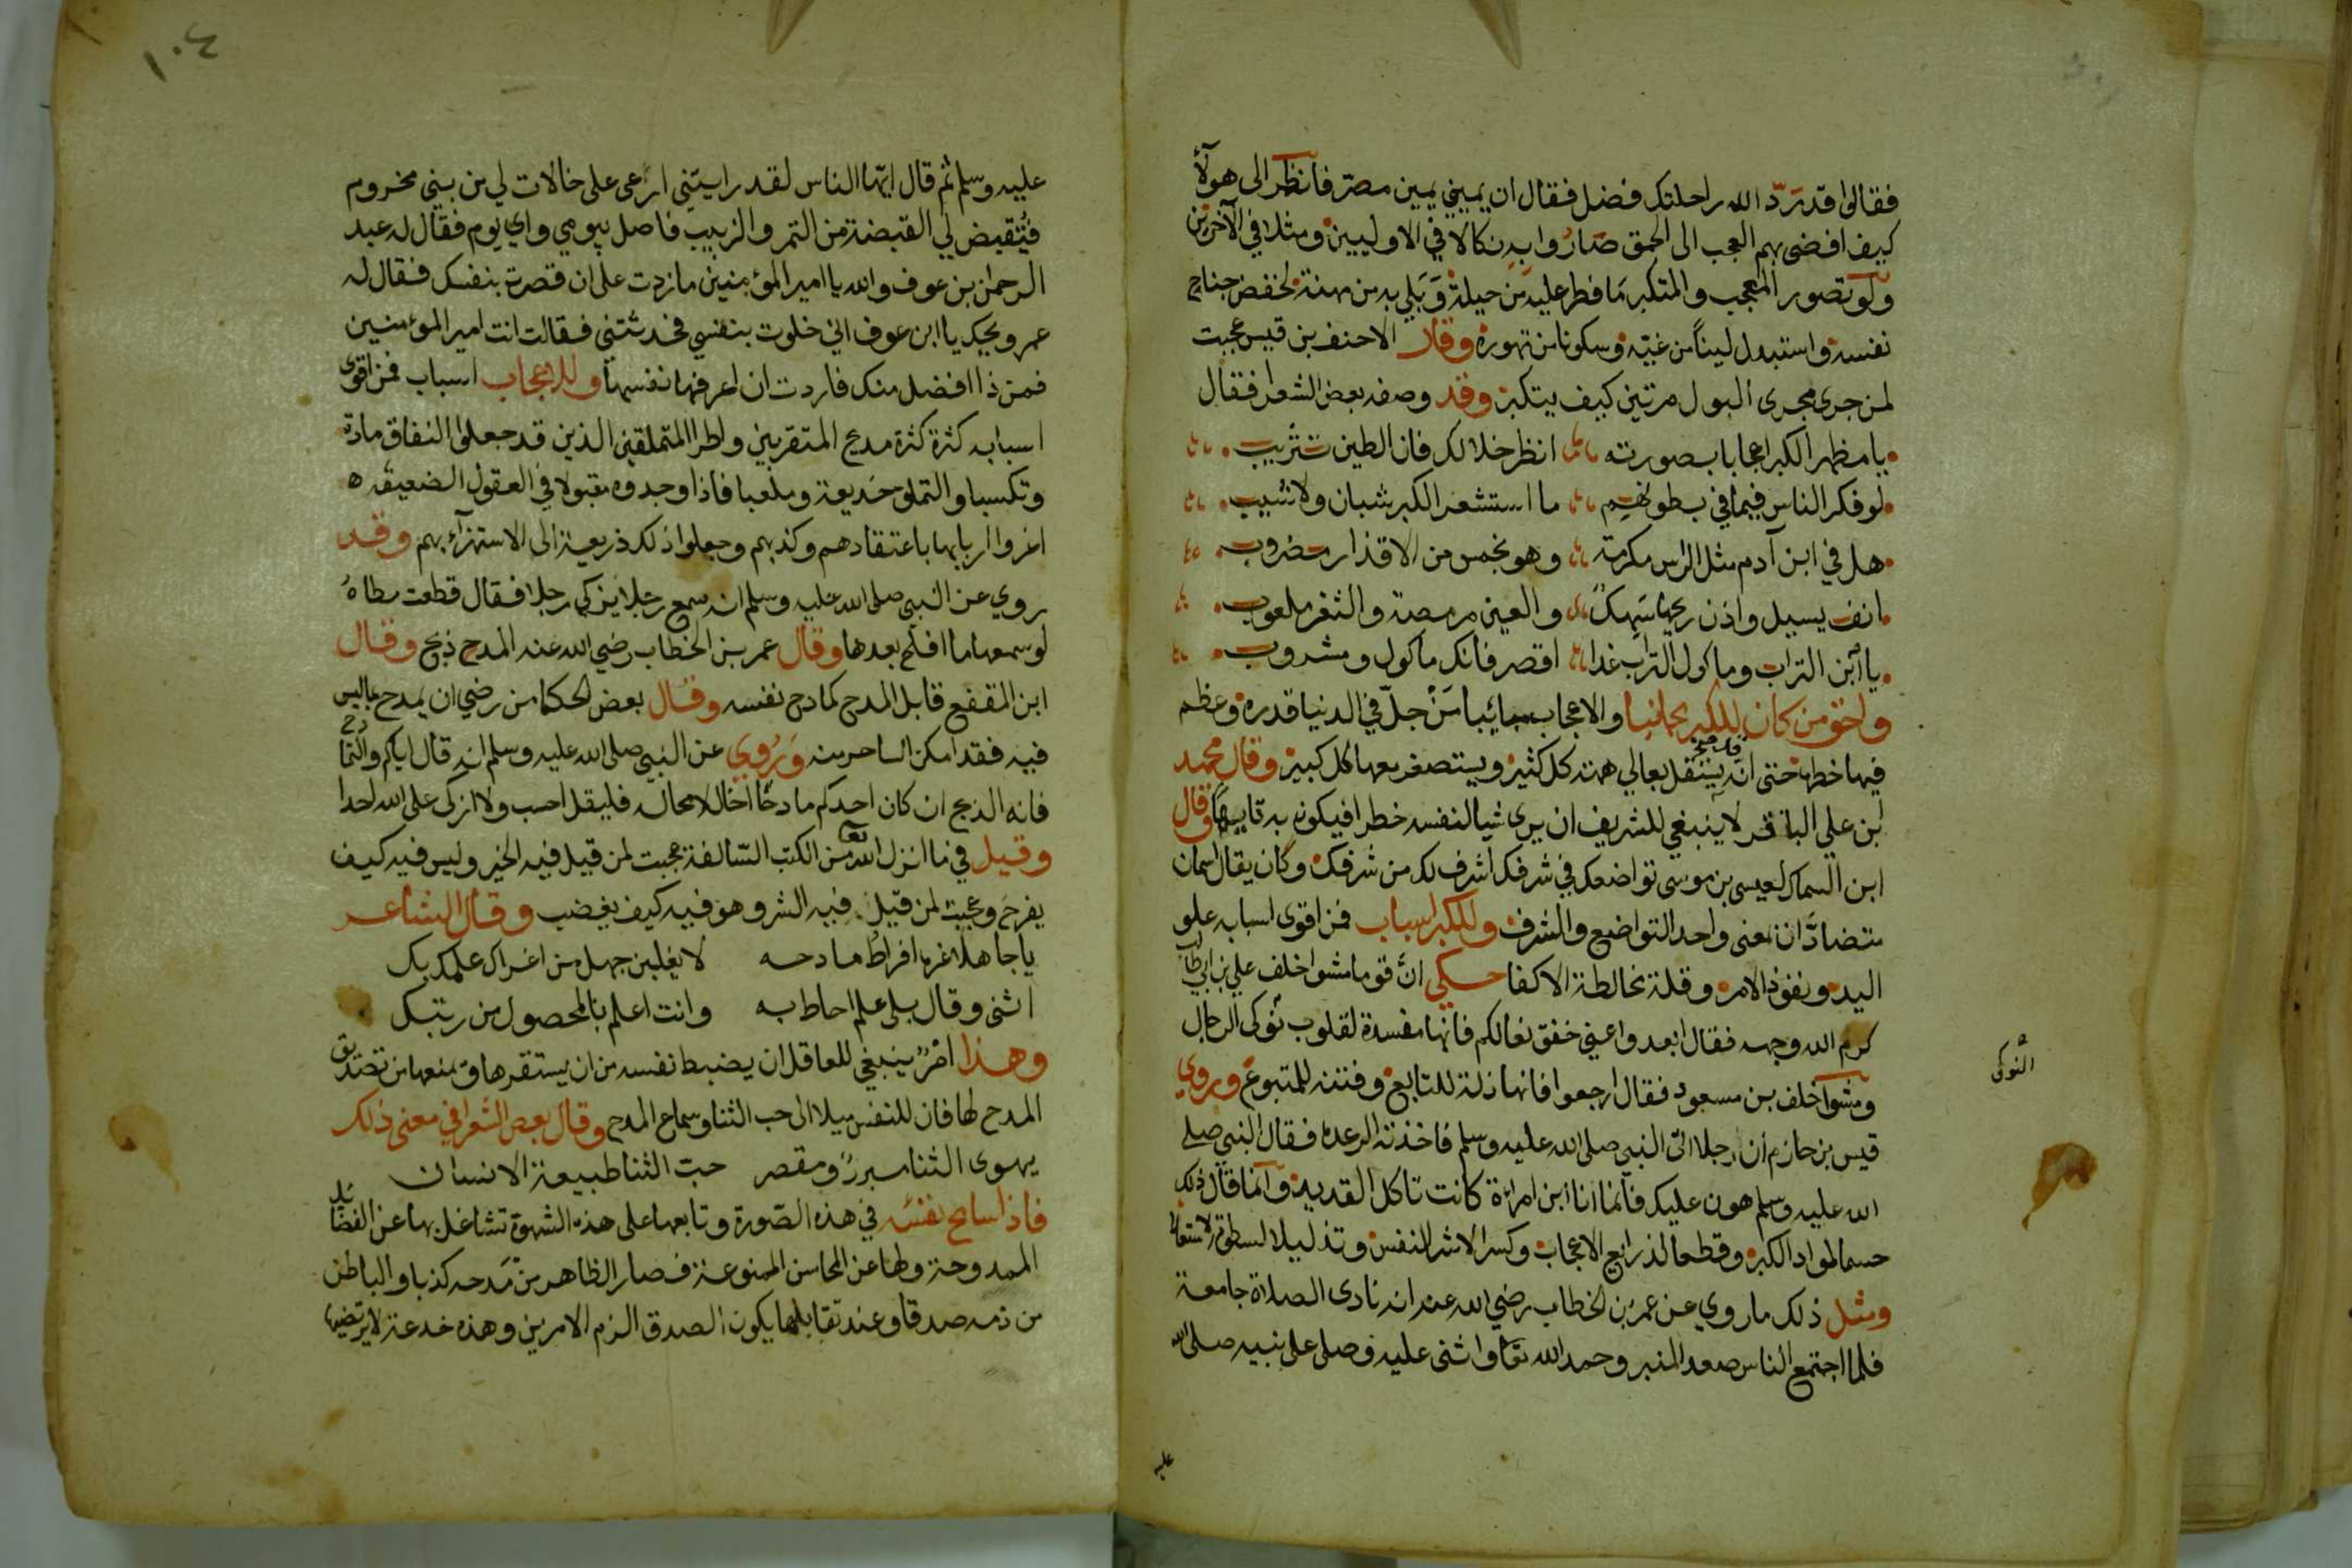 فقالوا قد رَدّ الله راحلتك فضل فقال ان يميني يمين مصرّ فانظر الى هولآء
كيف افضى بهم العجب الى الحمق صَارُوا به نكالا في الاوليين ومثلا في الآخرين
ولو تصور المعجب والمتكبر مَا فطر عليه من حيلة وَبَلي به من مهنة لخفض جناح
نفسه واستبدل لينًا من غيّه وسكونا من تهوره وقال الاحنف بن قيس عجبت
لمن جرى مجرى البول مرتين كيف يتكبر وقد وصفه بعض الشعرا فقال
يا مظهر الكبر اعجابا بصورته انظر خلالك فان الطين تثريب
لو فكر الناس فيما في بطونهم ما استشعر الكبر شبان ولا شيب
هل في ابن آدم مثل الراس مكرمة وهو بخمس من الاقذار مضروب
انف يسيل واذن ريحها سَهِكٌ والعين مرمصة والثغر ملعوب
يا ابن التراب وماكول التراب غدا اقصر فانك ماكول ومشروب
واحق من كان للكبر مجانبا والاعجاب مبائنا مَنْ جلّ في الدنيا قدره وعظم
فيها خطره حتى انه قد يستقل بعالي همته كل كثير ويستصغر معها كل كبير وقال محمد
ابن علي الباقر لا ينبغي للشريف ان يرى شيا لنفسه خطرا فيكون به تايها وقال
ابن السماك لعيسى بن موسى تواضعك في شرفك اشرف لك من شرفك وكان يقال اسمان
متضادَّان بمعنى واحد التواضع والشرف وللكبر اسباب فمن اقوى اسبابه علو
اليد ونفوذ الامر وقلة مخالطة الاكفا حكي انّ قوما مشوا خلف علي بن ابي طالب
كرم الله وجهه فقال ابعدوا عني خفق نعالكم فانها مفسدة لقلوب نوكى الرجال
النوكى
ومشوا خلف بن مسعود فقال ارجعوا فانها ذلة للتابع وفتنه للمتبوع وروي
قيس بن حازم أن رجلا اتى النبي صلى الله عليه وسلم فاخذته الرعدة فقال النبي صلى
الله عليه وسلم هون عليك فانما انا ابن امراة كانت تاكل القديد وانما قال ذلك
حسما لمواد الكبر وقطعا لذرايع الاعجاب وكسرا لاشر النفس وتذليلا لسطوة الاستعلا
ومثل ذلك ما روي عن عمر بن الخطاب رضي الله عنه انه نادى الصلاة جامعة
فلما اجتمع الناس صعد المنبر وحمد الله تعا واثنى عليه وصلى على نبيه صلى الله
عليه
١٠٤
عليه وسلم ثم قال ايّها الناس لقد رايتني ارعى على خالات لي من بني مخزوم
فيُقبض لي القبضة من التمر والزبيب فاصل بيومي واي يوم فقال له عبد
الرحمن بن عوف والله يا امير المؤمنين ما زدت على ان قصرت بنفسك فقال له
عمر ويحك يا ابن عوف اني خلوت بنفسي فحدثتني فقالت انت امير المؤمنين
فمن ذا افضل منك فاردت ان اعرفها نفسها وللاعجاب اسباب فمن اقوى
اسبابه كثرة كثرة مديح المتقربين واطرا المتملقين الذين قد جعلوا النفاق مادة
وتكسبا والتملق خديعة وملعبا فاذا وجدوه مقبولا في العقول الضعيفه
اغروا اربابها باعتقادهم وكذبهم وجعلوا ذلك ذريعة الى الاستهزآء بهم وقد
روي عن النبي صلى الله عليه وسلم انه سمع رجلا يزكي رجلا فقال قطعت مطاهُ
لو سمعها ما افلح بعدها وقال عمر بن الخطاب رضي الله عنه المدح ذبح وقال
ابن المقفع قابل المدح كمادح نفسه وقال بعض الحكما من رضي ان يمدح بما ليس
فيه فقد امكن الساحر منه وَرُوِي عن النبي صلى الله عليه وسلم انه قال اياكم والتمادح
فانه الذبح ان كان احدكم مادحًا اخاه لا محاله فليقل احسب ولا ازكى على الله احدا
وقيل في ما انزل الله تعا من الكتب السّالفة عجبت لمن قيل فيه الخير وليس فيه كيف
يفرح وعجبت لمن قيل فيه الشر وهو فيه كيف يغضب وقال الشاعر
يا جاهلا غره افراط مادحه لا يغلبن جهل من اغراك علمك بك
اثنى وقال بلى علم احاط به وانت اعلم بالمحصول من رتبك
وهذا امْرٌ ينبغي للعاقل ان يضبط نفسه من ان يستفزها ويمنعها من تصديق
المدح لها فان للنفس ميلا الى حب الثنا وسماع المدح وقال بعض الشعرا في معنى ذلك
يهوى الثنا مبررٌ ومقصر حبّ الثنا طبيعة الانسان
فاذا سامح نفسَه في هذه الصّورة وتابعها على هذه الشهوة تشاغل بها عن الفضائل
الممدوحة ولها عن المحاسن الممنوعة فصار الظاهر من مَدحه كذبا والباطن
من ذمه صدقا وعند تقابلهما يكون الصدق الزم الامرين وهذه خدعة لا يرتضيها